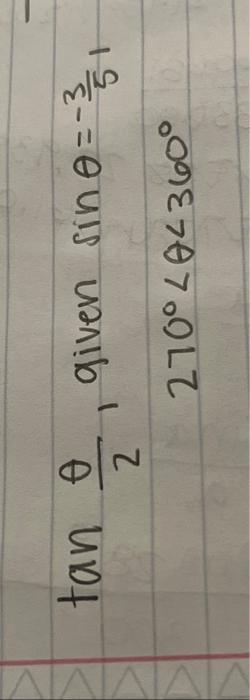 tan θ/2, given sin θ = -3/5,
270° < θ < 360°